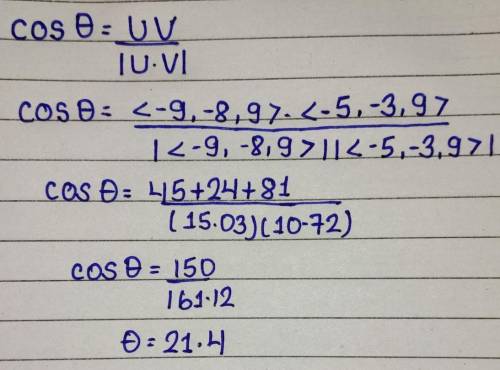 cos θ = UV
|U·V|
cos θ = <-9, -8, 9>·<-5, -3, 9>
|<-9, -8, 9>||<-5, -3, 9>|
cos θ = 45+24+81
(15.03)(10.72)
cos θ = 150
161.12
θ = 21.4